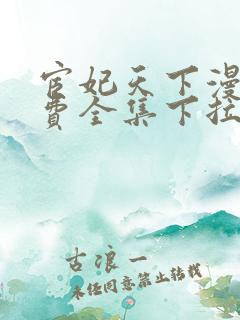 宦妃天下漫
费全集下拉
古浪一
未经同意禁止转载